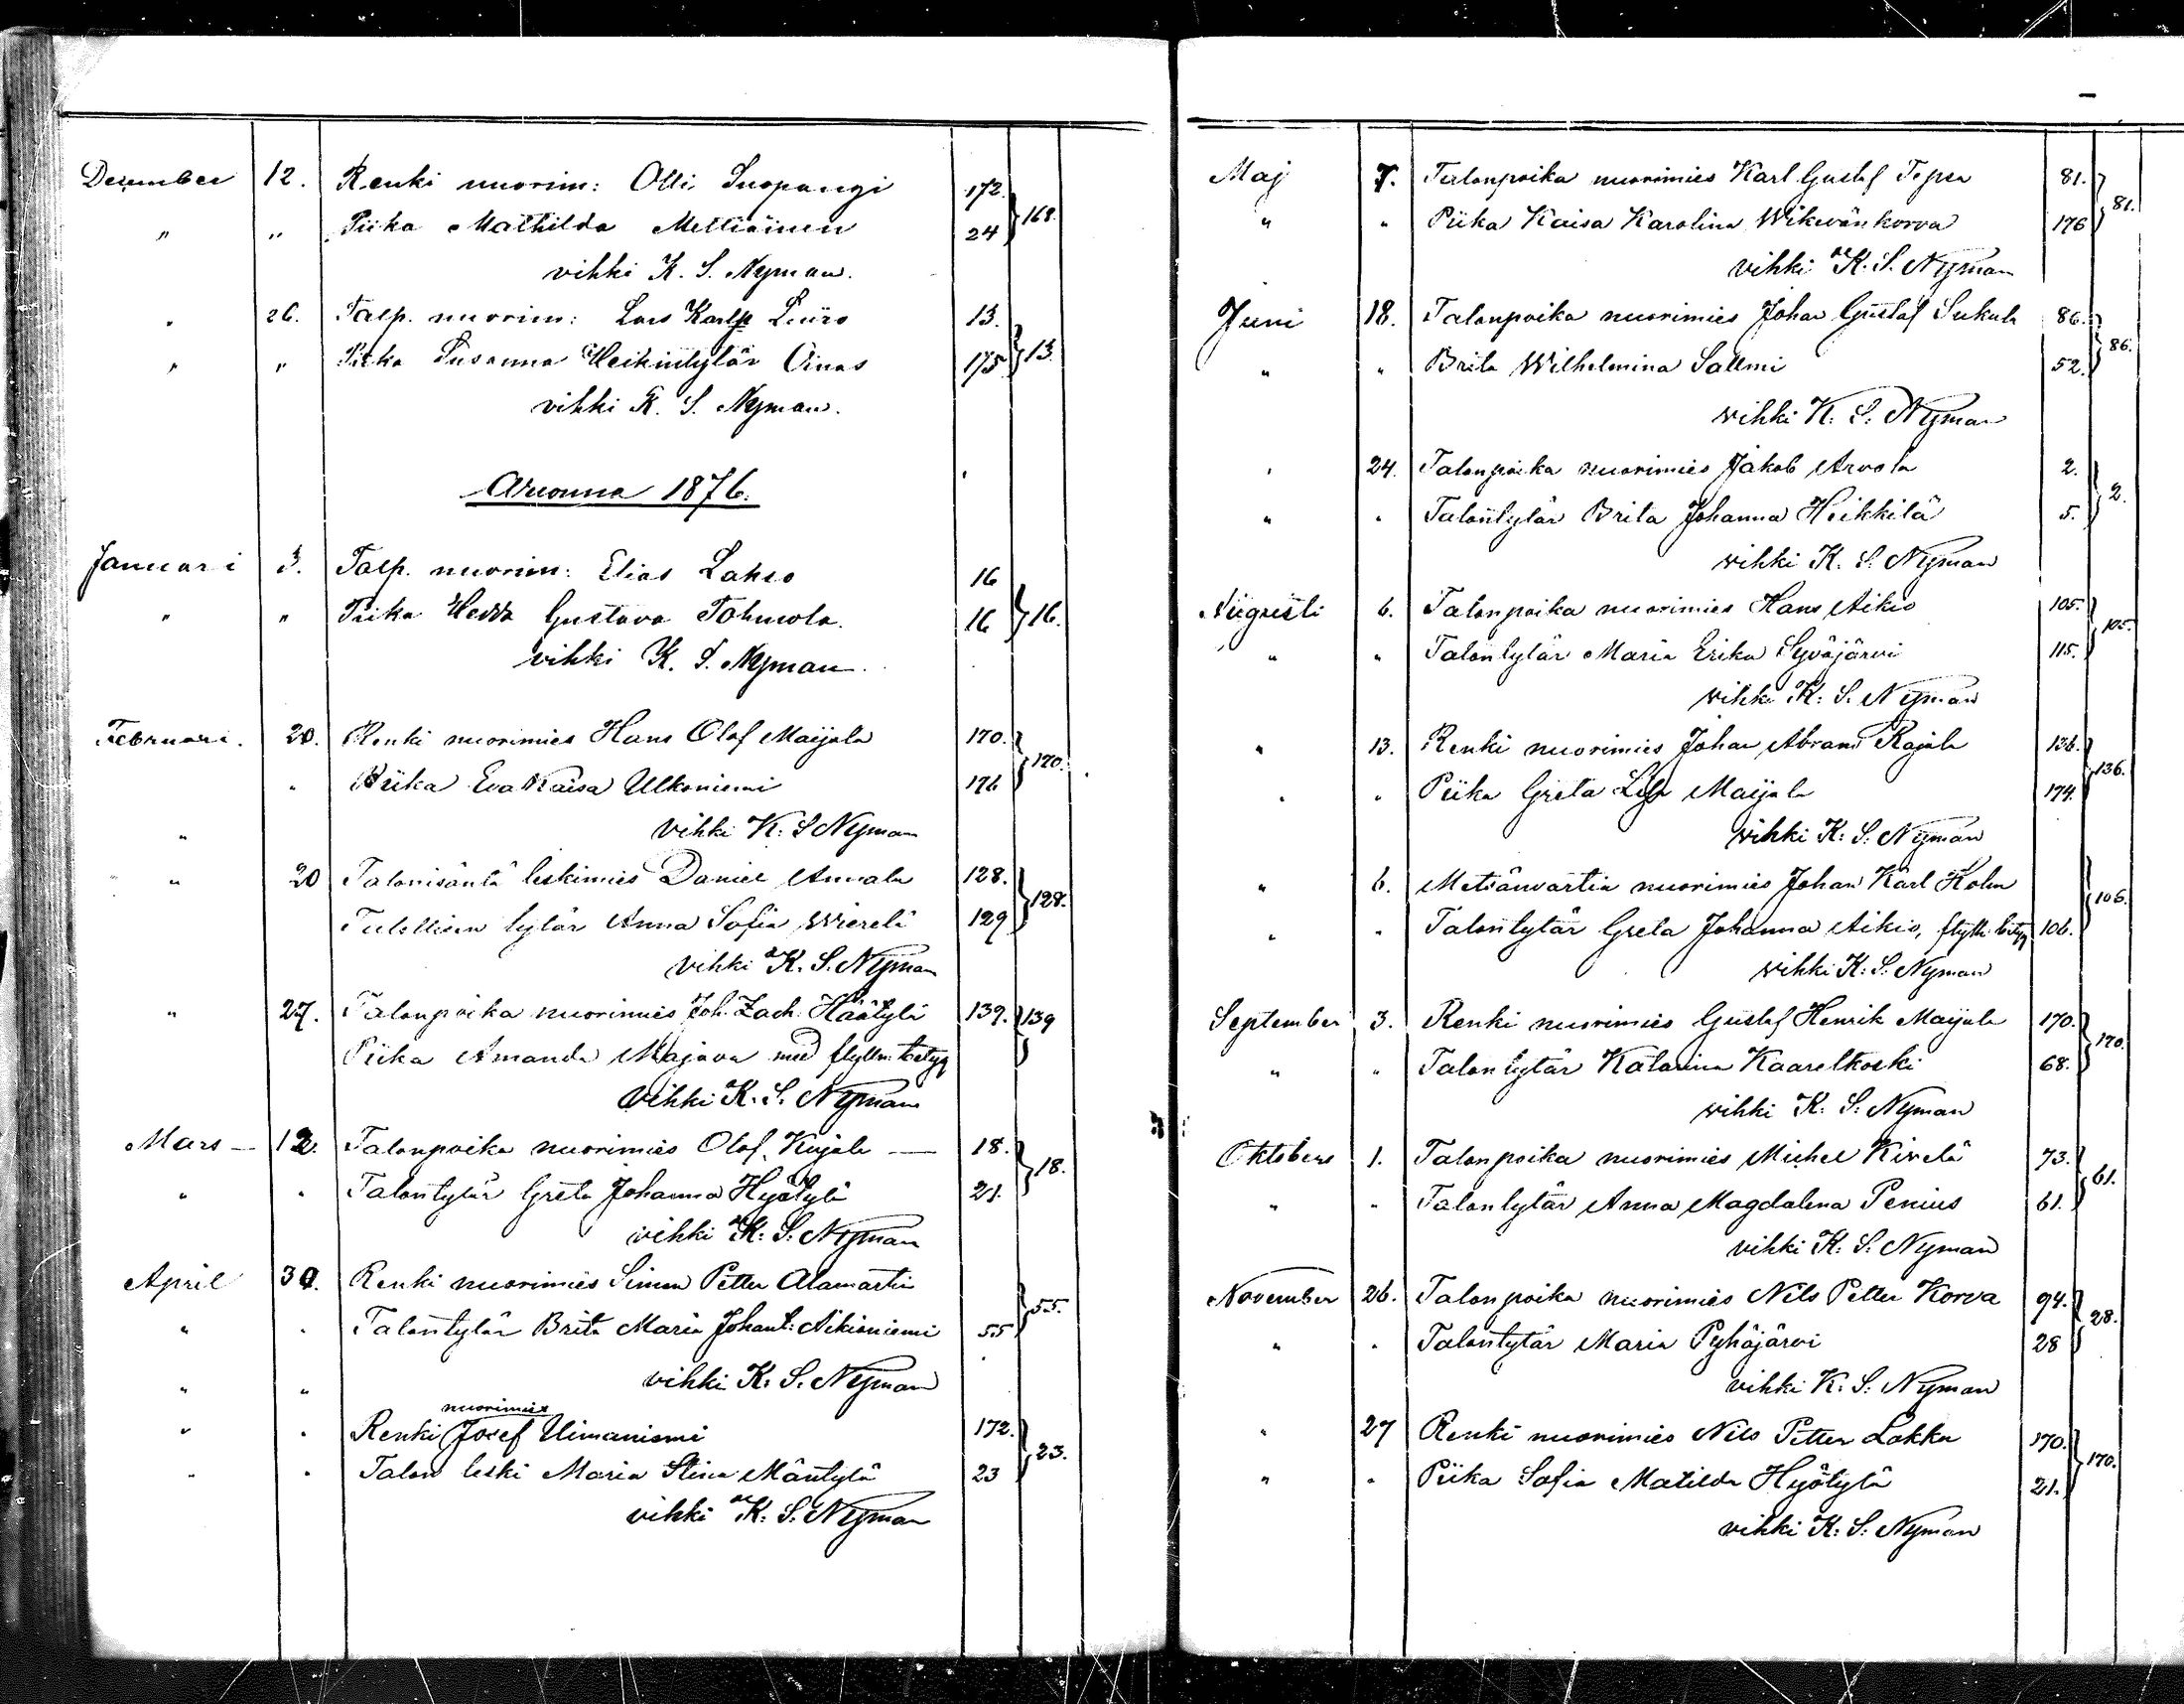 December 12. Renki nuorim: Olli Suopangi 172. } 168.
" " Piika Mathilda Mettiäinen 24
vihki K. S. Nyman.
" 26. Talp. nuorim: Lars Karlp Liiro 13. } 13.
" " Piika Susanna Heikintytär Oinas 175
vihki K. S. Nyman.
Wuonna 1876.
Januari 3. Talp. nuorim: Elias Lakso 16 } 16.
" " Piika Hedda Gustava Tohmola. 16
vihki K. S. Nyman.
Februari. 20. Renki nuorimies Hans Olof Maijala 170. } 170.
" Piika Eva Kaisa Ulkoniemi 176
" vihki K: S Nyman
" 20 Talonisäntä leskimies Daniel Annala 128. } 128.
tytär Anna Sofia Wierelä 129
vihki K. S. Nyman
" 27. Talonpoika nuorimies Joh. Zach. Häätylä 139. } 139
Piika Amanda Majava med flyttn. betyg
Vihki K. S. Nyman
Mars — 12. Talonpoika nuorimies Olof Kujala — 18. } 18.
" " Talontytär Greta Johanna Hyötylä 21.
vihki K: S. Nyman
April 30. Renki nuorimies Simon Petter Alamartti } 55.
" " Talontytär Brita Maria Johant: Aikioniemi 55
" " vihki K: S. Nyman
nuorimies
" " Renki Josef Uimaniemi 172. } 23.
" " Talon leski Maria Stina Mäntylä 23
vihki K: S. Nyman
Maj 7. Talonpoika nuorimies Karl Gustaf Tepsa 81. } 81.
" " Piika Kaisa Karolina Wikevänkorva 176
vihki K. S. Nyman
Juni 18. Talonpoika nuorimies Johan Gustaf Sukula 86. } 86.
" " Brita Wilhelmina Salmi 52.
vihki K: S. Nyman
" 24. Talonpoika nuorimies Jakob Arvola 2. } 2.
" " Talontytär Brita Johanna Heikkilä 5.
vihki K. S. Nyman
Augusti 6. Talonpoika nuorimies Hans Aikio 105. } 105.
" " Talontytär Maria Erika Syväjärvi 115.
vihki K: S. Nyman
" 13. Renki nuorimies Johan Abram Rajala 136. } 136.
" " Piika Greta Maijala 174.
vihki K: S. Nyman
" 6. Metsänvartia nuorimies Johan Karl Holm } 106.
" " Talontytär Greta Johanna Aikio, flytt. betyg 106.
vihki K: S. Nyman
September 3. Renki nuorimies Gustaf Henrik Maijala 170. } 170.
" " Talontytär Katarina Kaarelkoski 68.
vihki K: S: Nyman
Oktobers 1. Talonpoika nuorimies Michel Kivelä 73. } 61.
" " Talontytär Anna Magdalena Penius 61.
vihki K: S. Nyman
November 26. Talonpoika nuorimies Nils Petter Korva 94. } 28.
" " Talontytär Maria Pyhäjärvi 28
vihki K: S: Nyman
" 27 Renki nuorimies Nils Petter Lakka 170. } 170.
" " Piika Sofia Matilda Hyötylä 21.
vihki K: S: Nyman